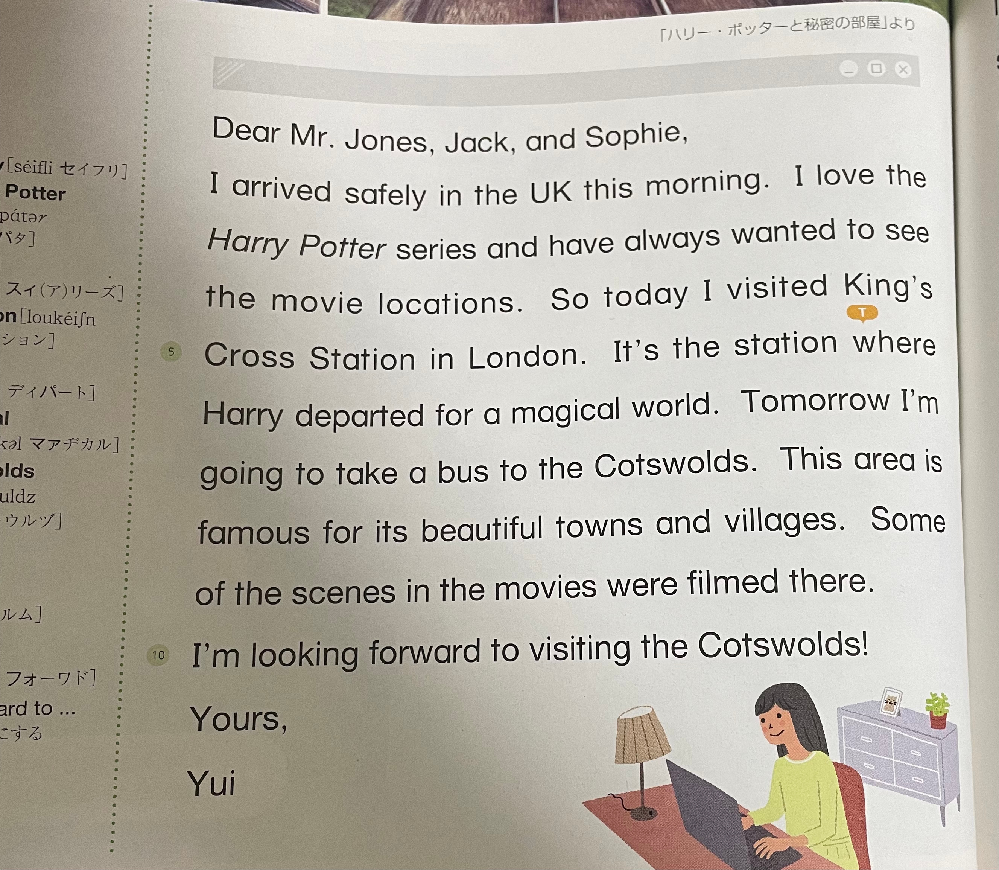 「ハリー・ポッターと秘密の部屋」より
Dear Mr. Jones, Jack, and Sophie,
I arrived safely in the UK this morning. I love the
Harry Potter series and have always wanted to see
the movie locations. So today I visited King's
T
5 Cross Station in London. It's the station where
Harry departed for a magical world. Tomorrow I'm
going to take a bus to the Cotswolds. This area is
famous for its beautiful towns and villages. Some
of the scenes in the movies were filmed there.
10 I'm looking forward to visiting the Cotswolds!
Yours,
Yui
[séifli セイフリ]
Potter
pátər
パタ]
スィ(ア)リーズ]
on[loukéiʃn
ション]
ディパート]
al
kəl マアヂカル]
olds
uldz
ウルヅ]
ルム]
フォーワド]
ard to ...
にする